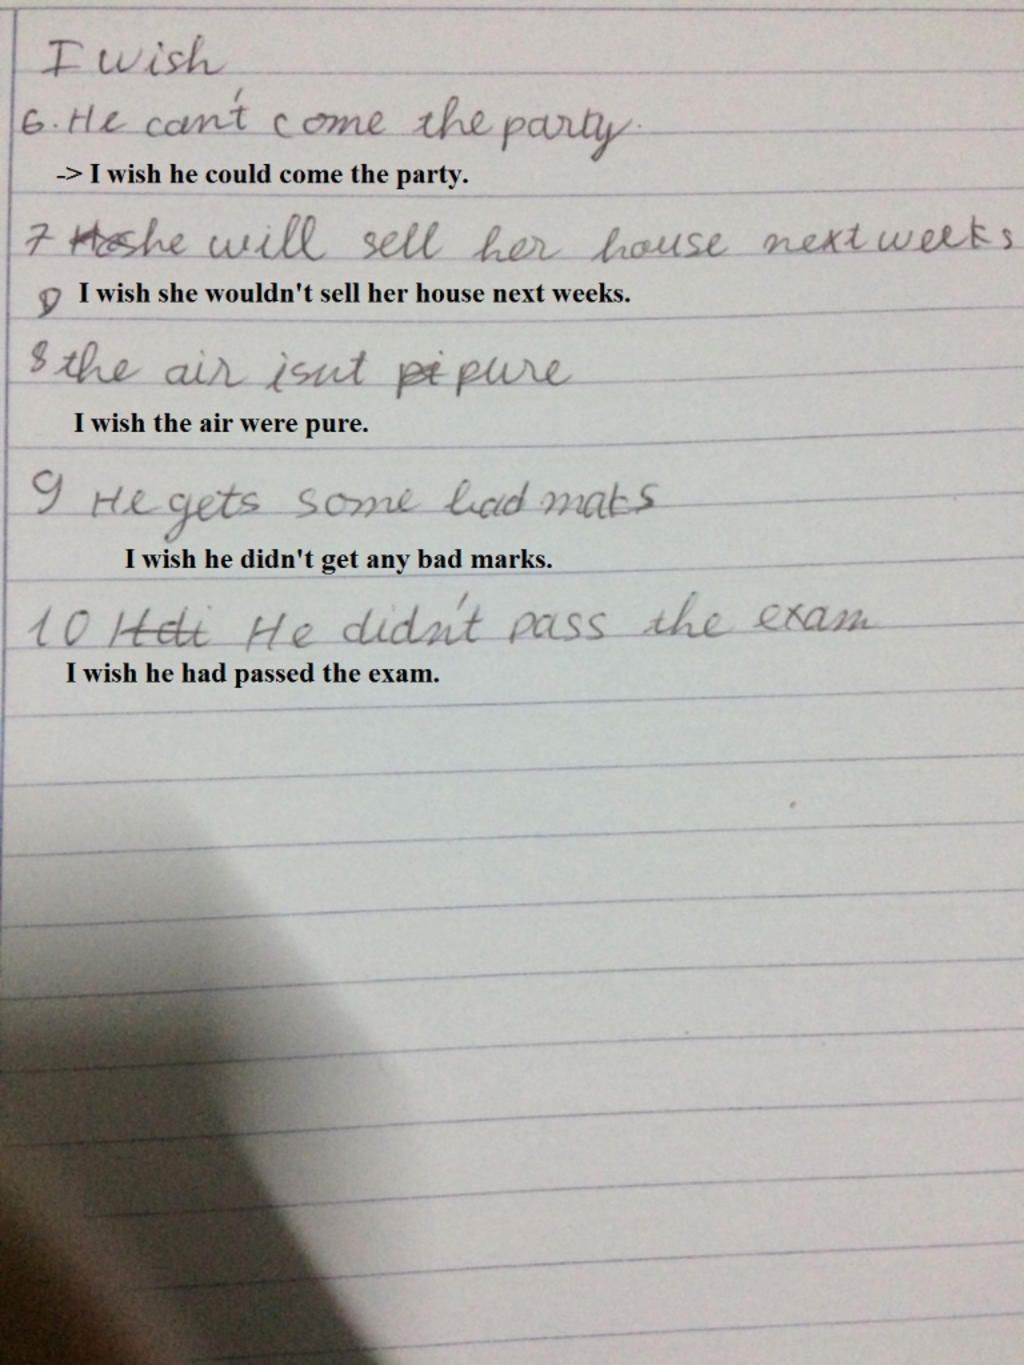 I wish
6. He can't come the party.
-> I wish he could come the party.
7 she will sell her house next weeks
I wish she wouldn't sell her house next weeks.
8 the air isnt pure
I wish the air were pure.
9 He gets some bad maks
I wish he didn't get any bad marks.
10 He didn't pass the exam
I wish he had passed the exam.